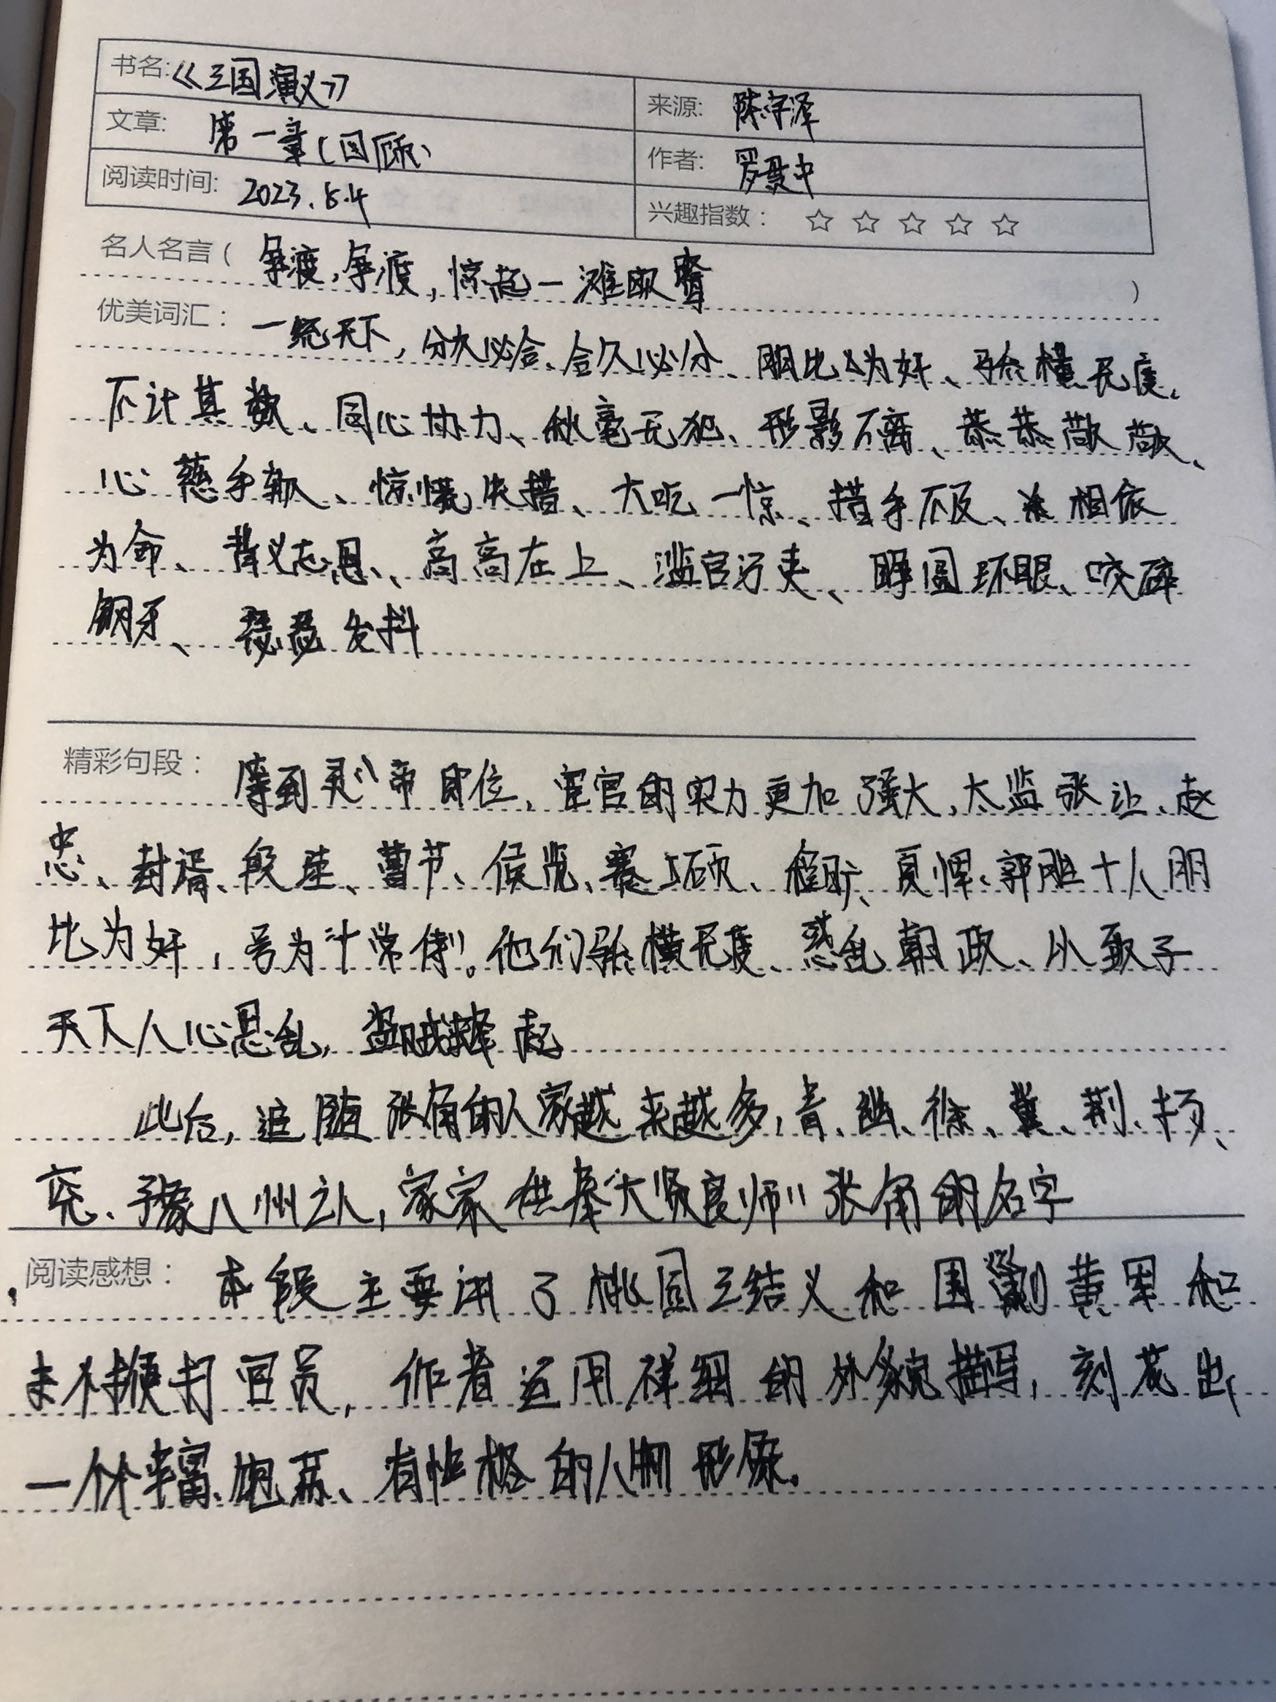 书名:《三国演义》
来源: 陈宇泽
文章: 第一章(回顾)
作者: 罗贯中
阅读时间: 2023.8.4
兴趣指数: ☆ ☆ ☆ ☆ ☆
名人名言( 争渡,争渡,惊起一滩鸥鹭 )
优美词汇: 一统天下,分久必合、合久必分、朋比为奸、骄横无度、
不计其数、同心协力、秋毫无犯、形影不离、恭恭敬敬、
心慈手软、惊慌失措、大吃一惊、措手不及、相依
为命、背义忘恩、高高在上、滥官污吏、睁圆环眼、咬碎
钢牙、瑟瑟发抖
精彩句段: 等到灵帝即位,宦官的实力更加强大,太监张让、赵
忠、封谞、段珪、曹节、侯览、蹇硕、程旷、夏恽、郭胜十人朋
比为奸,号为“十常侍”。他们骄横无度、惑乱朝政、以致于
天下人心思乱,盗贼蜂起
此后,追随张角的人家越来越多,青、幽、徐、冀、荆、扬、
兖、豫八州之人,家家供奉“大贤良师”张角的名字
阅读感想: 本段主要讲了桃园三结义和围剿黄巾和
张飞鞭打官员,作者运用详细的外貌描写,刻花出
一个个丰富、饱满、有性格的人物形象。